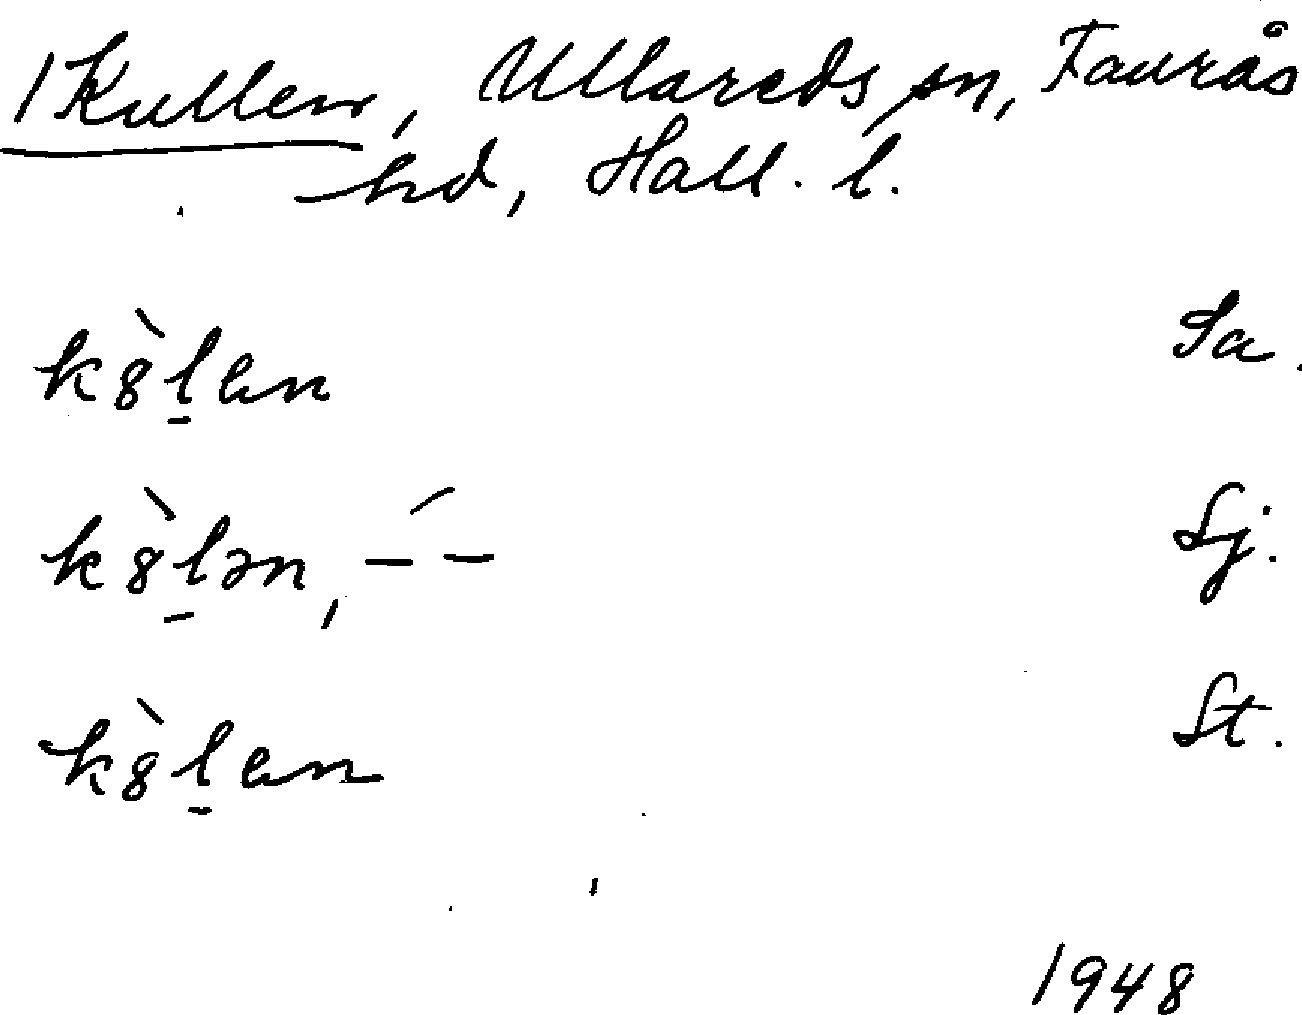 1 Kullen, Ullareds sn, Faurås
hd, Hall. l.
k8̀l̠en Sa.
k8̀l̠ən, –́ – Sj.
k8̀l̠en St.
1948